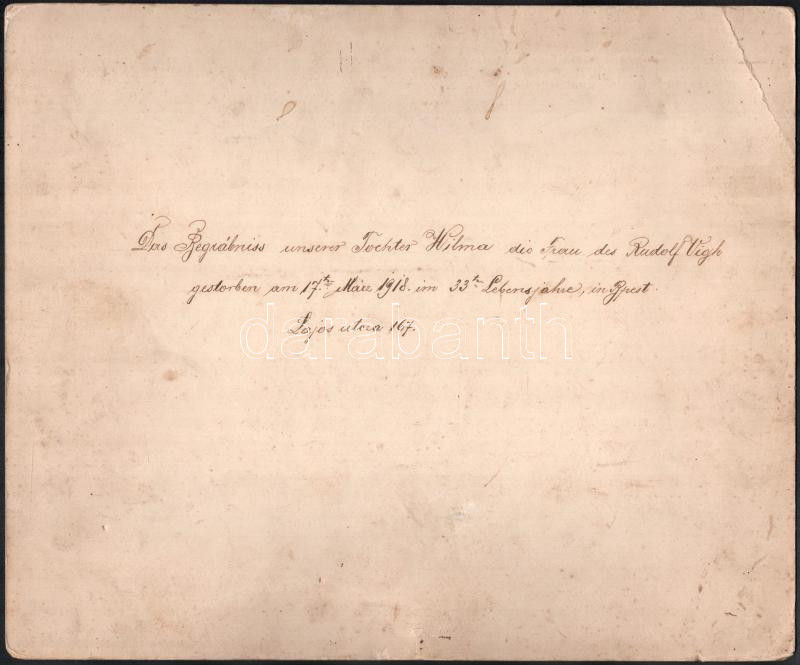 Das Begräbniss unserer Tochter Wilma die Frau des Rudolf Vigh
gestorben am 17ten März 1918. im 33ten Lebensjahre, in Bpest.
Lajos utcza 167.
darabanth